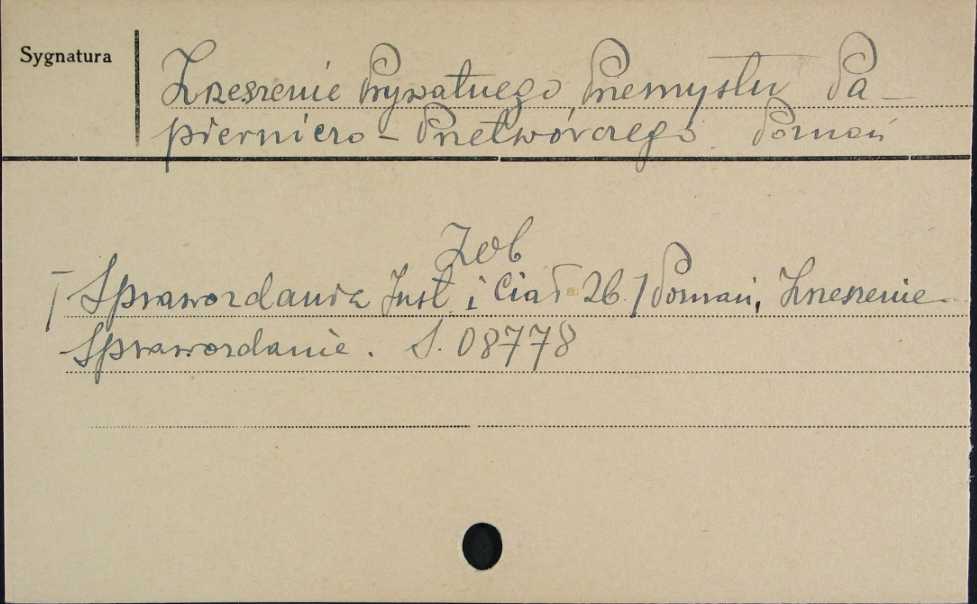 Sygnatura
Zrzeszenie Prywatnego Przemysłu Pa-
pierniczo-Przetwórczego. Poznań
Zob
[Sprawozdania Inst. i Ciał 26.] Poznań, Zrzeszenie
Sprawozdanie. S. 08778